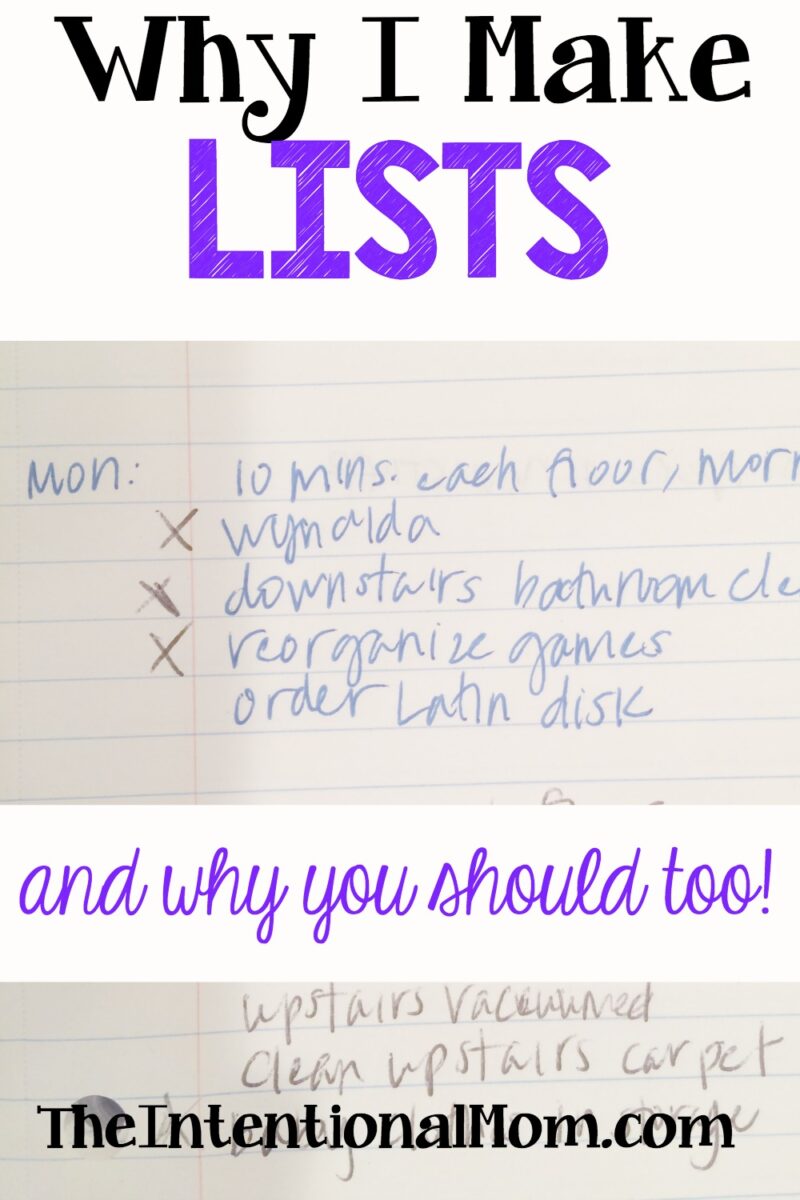 Why I Make
LISTS
Mon: 10 mins. each floor, morn
X wynalda
X downstairs bathroom cle
X reorganize games
order Latin disk
and why you should too!
upstairs vacuumed
clean upstairs carpet
in storage
TheIntentionalMom.com